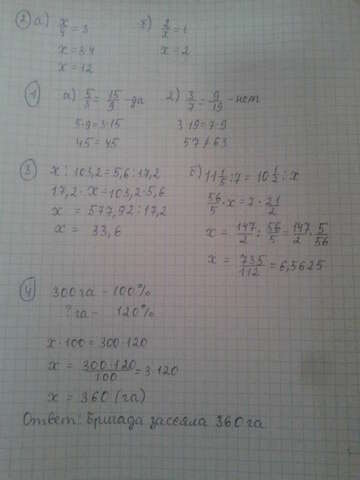 2) а) x/4 = 3 б) 2/x = 1
x = 3·4 x = 2
x = 12
1) а) 5/3 = 15/9 - да 2) 3/7 = 9/19 - нет
5·9 = 3·15 3·19 = 7·9
45 = 45 57 ≠ 63
3) x : 103,2 = 5,6 : 17,2 б) 11 1/5 : 7 = 10 1/2 : x
17,2 · x = 103,2 · 5,6 56/5 · x = 7 · 21/2
x = 577,92 : 17,2 x = 147/2 : 56/5 = 147/2 · 5/56
x = 33,6 x = 735/112 = 6,5625
4) 300 га - 100%
? га - 120%
x · 100 = 300 · 120
x = 300·120/100 = 3·120
x = 360 (га)
Ответ: Бригада засеяла 360 га